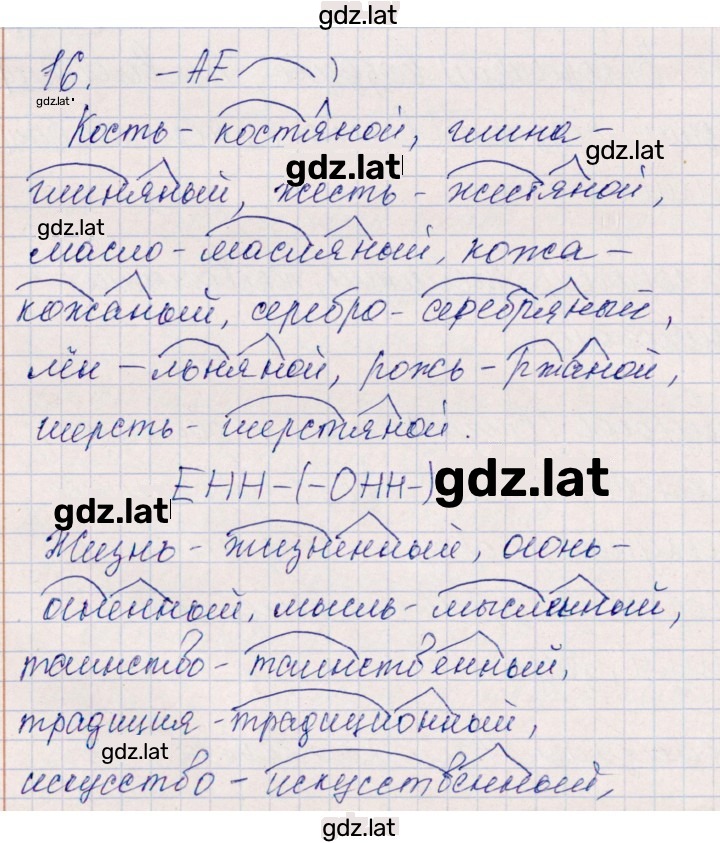 gdz.lat
16. -АЕ )
gdz.lat
Кость - костяной, глина -
gdz.lat
gdz.lat
глиняный, жесть - жестяной,
gdz.lat
масло - масляный, кожа -
кожаный, серебро - серебряный,
лён - льняной, рожь - ржаной,
шерсть - шерстяной.
ЕНН - (-ОНН-)
gdz.lat
gdz.lat
Жизнь - жизненный, огонь -
огненный, мысль - мысленный,
таинство - таинственный,
традиция - традиционный,
gdz.lat
искусство - искусственный,
gdz.lat